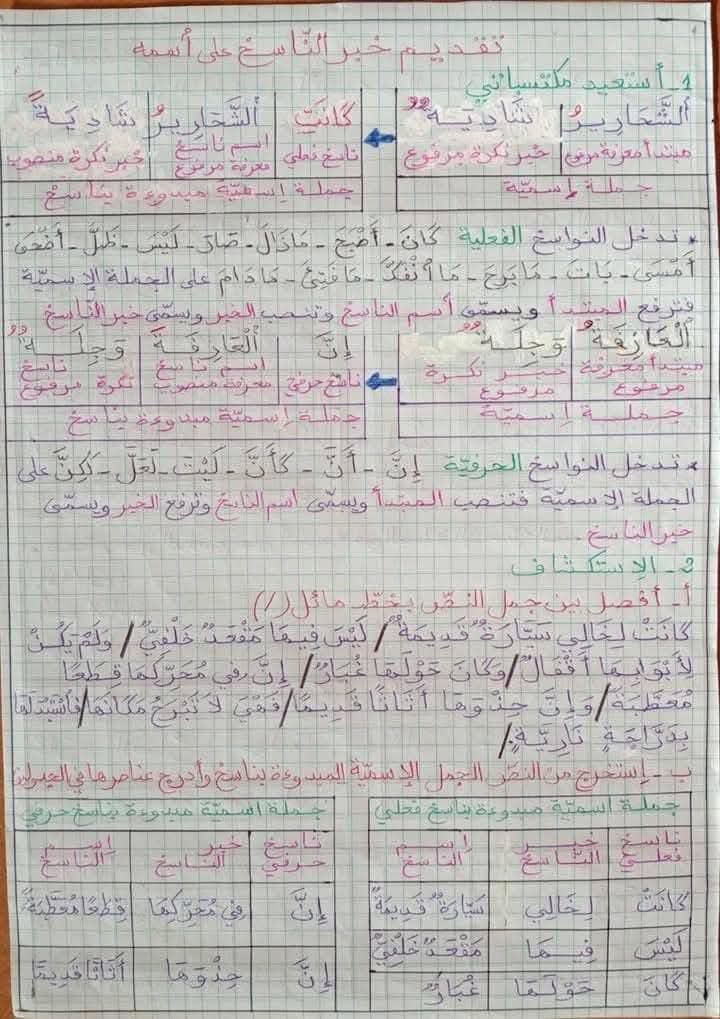 تقديم خبر النّاسخ على أسمه
1- أستعيد مكتسباتي
ألشَّحَارِيرُ شَادِيَةٌ
كَانَتْ ألشَّحَارِيرُ شَادِيَةً
مبتدأ معرفة مرفوع خبر نكرة مرفوع
ناسخ فعلي اسم ناسخ معرفة مرفوع خبر نكرة منصوب
جملة إسميّة
جملة إسميّة مبدوءة بناسخ
* تدخل النواسخ الفعلية كَانَ - أَصْبَحَ - مَازَالَ - صَارَ - لَيْسَ - ظَلَّ - أَضْحَى
أَمْسَى - بَاتَ - مَا بَرِحَ - مَا اَنْفَكَّ - مَا فَتِئَ - مَا دَامَ على الجملة الإسميّة
فترفع المبتدأ ويسمّى أسم الناسخ وتنصب الخبر ويسمّى خبر النّاسخ
ألْعَازِفَةُ وَجِلَةٌ
إِنَّ ألْعَازِفَةَ وَجِلَةٌ
مبتدأ معرفة مرفوع خبر نكرة مرفوع
ناسخ حرفي اسم ناسخ معرفة منصوب ناسخ نكرة مرفوع
جملة إسميّة
جملة إسميّة مبدوءة بناسخ
* تدخل النواسخ الحرفيّة إِنَّ - أَنَّ - كَأَنَّ - لَيْتَ - لَعَلَّ - لَكِنَّ على
الجملة الإسميّة فتنصب المبتدأ ويسمّى اسم الناسخ وترفع الخبر ويسمّى
خبر الناسخ.
2- الإستكشاف
أ- أفصل بين جمل النصّ بخطّ مائل (/)
كَانَتْ لِخَالِي سَيَّارَةٌ قَدِيمَةٌ / لَيْسَ فِيهَا مَقْعَدٌ خَلْفِيٌّ / وَلَمْ يَكُنْ
لِأَبْوَابِهَا أَقْفَالٌ / وَكَانَ حَوْلَهَا غُبَارٌ / إِنَّ فِي مُحَرِّكِهَا قِطَعًا
مُعَطَّبَةً / وَإِنَّ حِذْوَهَا أَثَاثًا قَدِيمًا / فَهْيَ لَا تَبْرَحُ مَكَانَهَا / فَأسْتَبْدَلَهَا
بِدَرَّاجَةٍ نَارِيَّةٍ. /
ب- إستخرج من النصّ الجمل الإسميّة المبدوءة بناسخ وأدرج عناصرها في الجدول
جملة اسميّة مبدوءة بناسخ فعلي جملة اسميّة مبدوءة بناسخ حرفي
ناسخ فعلي خبر النّاسخ إسم الناسخ ناسخ حرفي خبر الناسخ إسم الناسخ
كَانَتْ لِخَالِي سَيَّارَةٌ قَدِيمَةٌ إِنَّ فِي مُحَرِّكِهَا قِطَعًا مُعَطَّبَةً
لَيْسَ فِيهَا مَقْعَدٌ خَلْفِيٌّ
إِنَّ حِذْوَهَا أَثَاثًا قَدِيمًا
كَانَ حَوْلَهَا غُبَارٌ